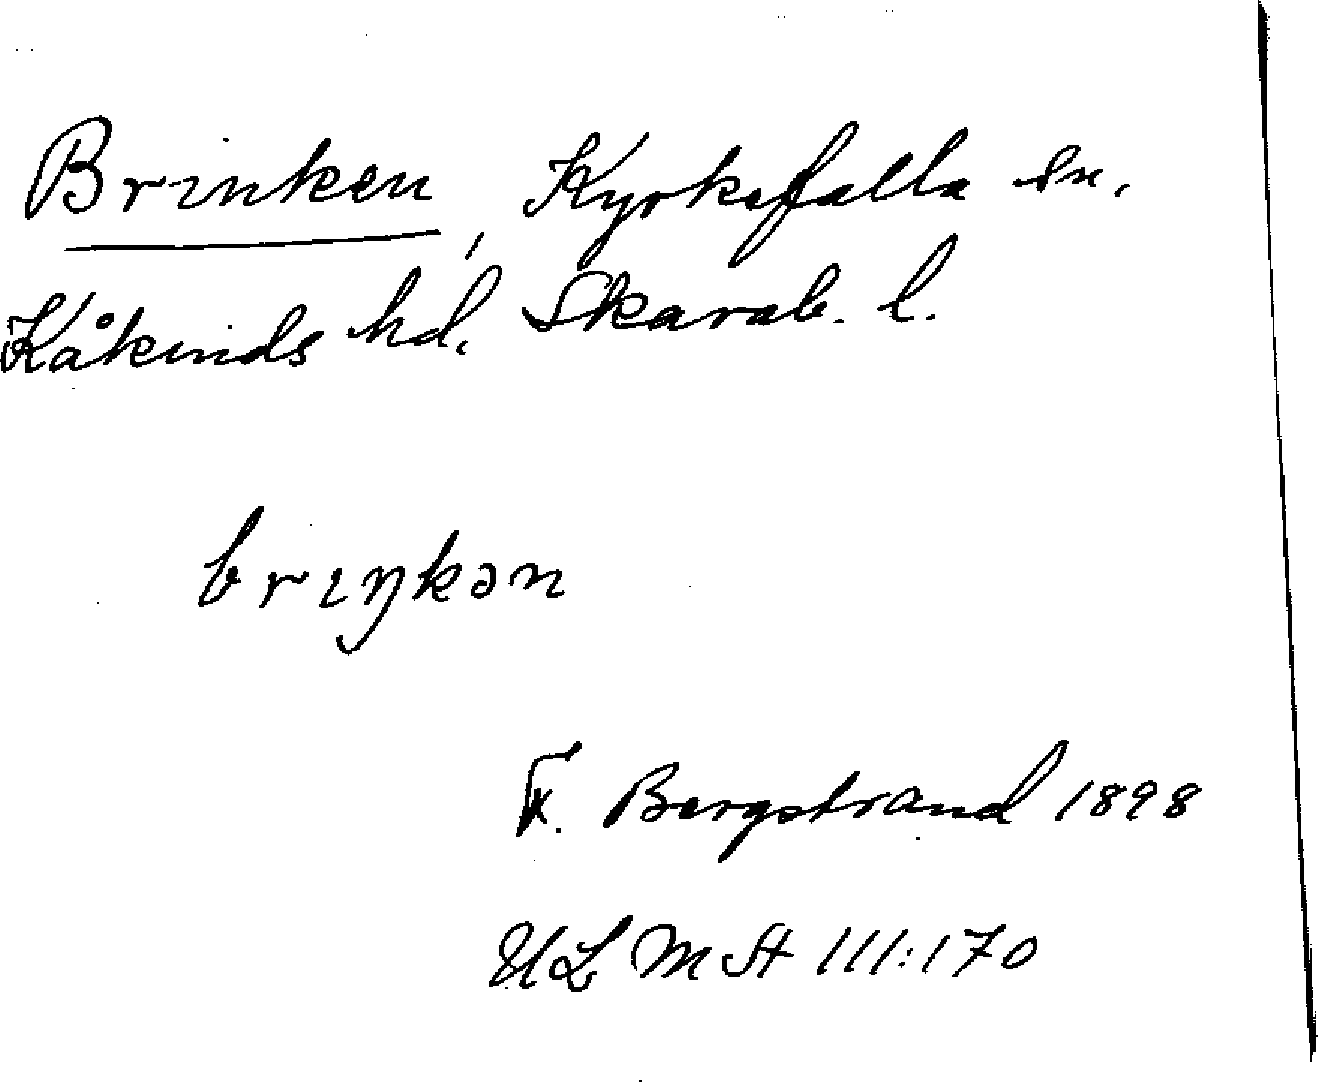 Brinken, Kyrkefalla sn.
Kåkinds hd, Skarab. l.
briŋkən
F. Bergstrand 1898
ULMA 111:170